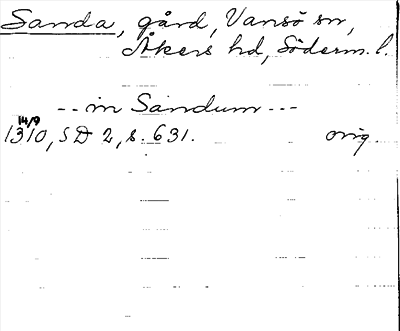 Sanda, gård, Vansö sn,
Åkers hd, Söderm. l.
-- in Sandum ---
14/9
1310, SD 2, s. 631. orig.